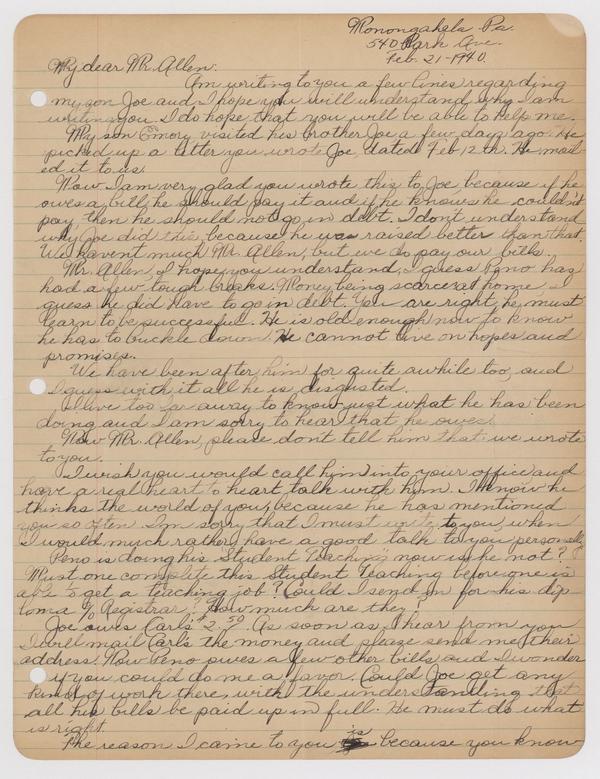 Monongahela Pa.
540 Park Ave.
Feb. 21-1940.
My dear Mr. Allen:
Am writing to you a few lines regarding
my son Joe and I hope you will understand why I am
writing you. I do hope that you will be able to help me.
My son Emory visited his brother Joe a few days ago. He
picked up a letter you wrote Joe, dated Feb 12th. He mail-
ed it to us.
Now I am very glad you wrote this to Joe, because if he
owes a bill, he should pay it and if he knows he couldn't
pay, then he should not go in debt. I don't understand
why Joe did this, because he was raised better than that.
We havent much Mr. Allen, but we do pay our bills.
Mr. Allen, I hope you understand, I guess Peno has
had a few tough breaks. Money being scarce at home, I
guess he did have to go in debt. You are right, he must
learn to be successful. He is old enough now to know
he has to buckle down. He cannot live on hopes and
promises.
We have been after him for quite awhile too, and
I guess with it all he is disgusted.
I live too far away to know just what he has been
doing and I am sorry to hear that he owes.
Now Mr. Allen, please don't tell him that we wrote
to you.
I wish you would call him into your office and
have a real heart to heart talk with him. I know he
thinks the world of you, because he has mentioned
you so often. I'm sorry that I must write to you, when
I would much rather have a good talk to you personally.
Peno is doing his Student Teaching now is he not?
Must one complete this Student Teaching before one is
able to get a teaching job? Could I send in for his dip-
loma % Registrar? How much are they?
Joe owes Carl's $2.50. As soon as I hear from you
I will mail Carl's the money and please send me their
address. Now Peno owes a few other bills and I wonder
if you could do me a favor. Could Joe get any
kind of work there, with the understanding that
all his bills be paid up in full. He must do what
is right.
The reason I came to you is because you know